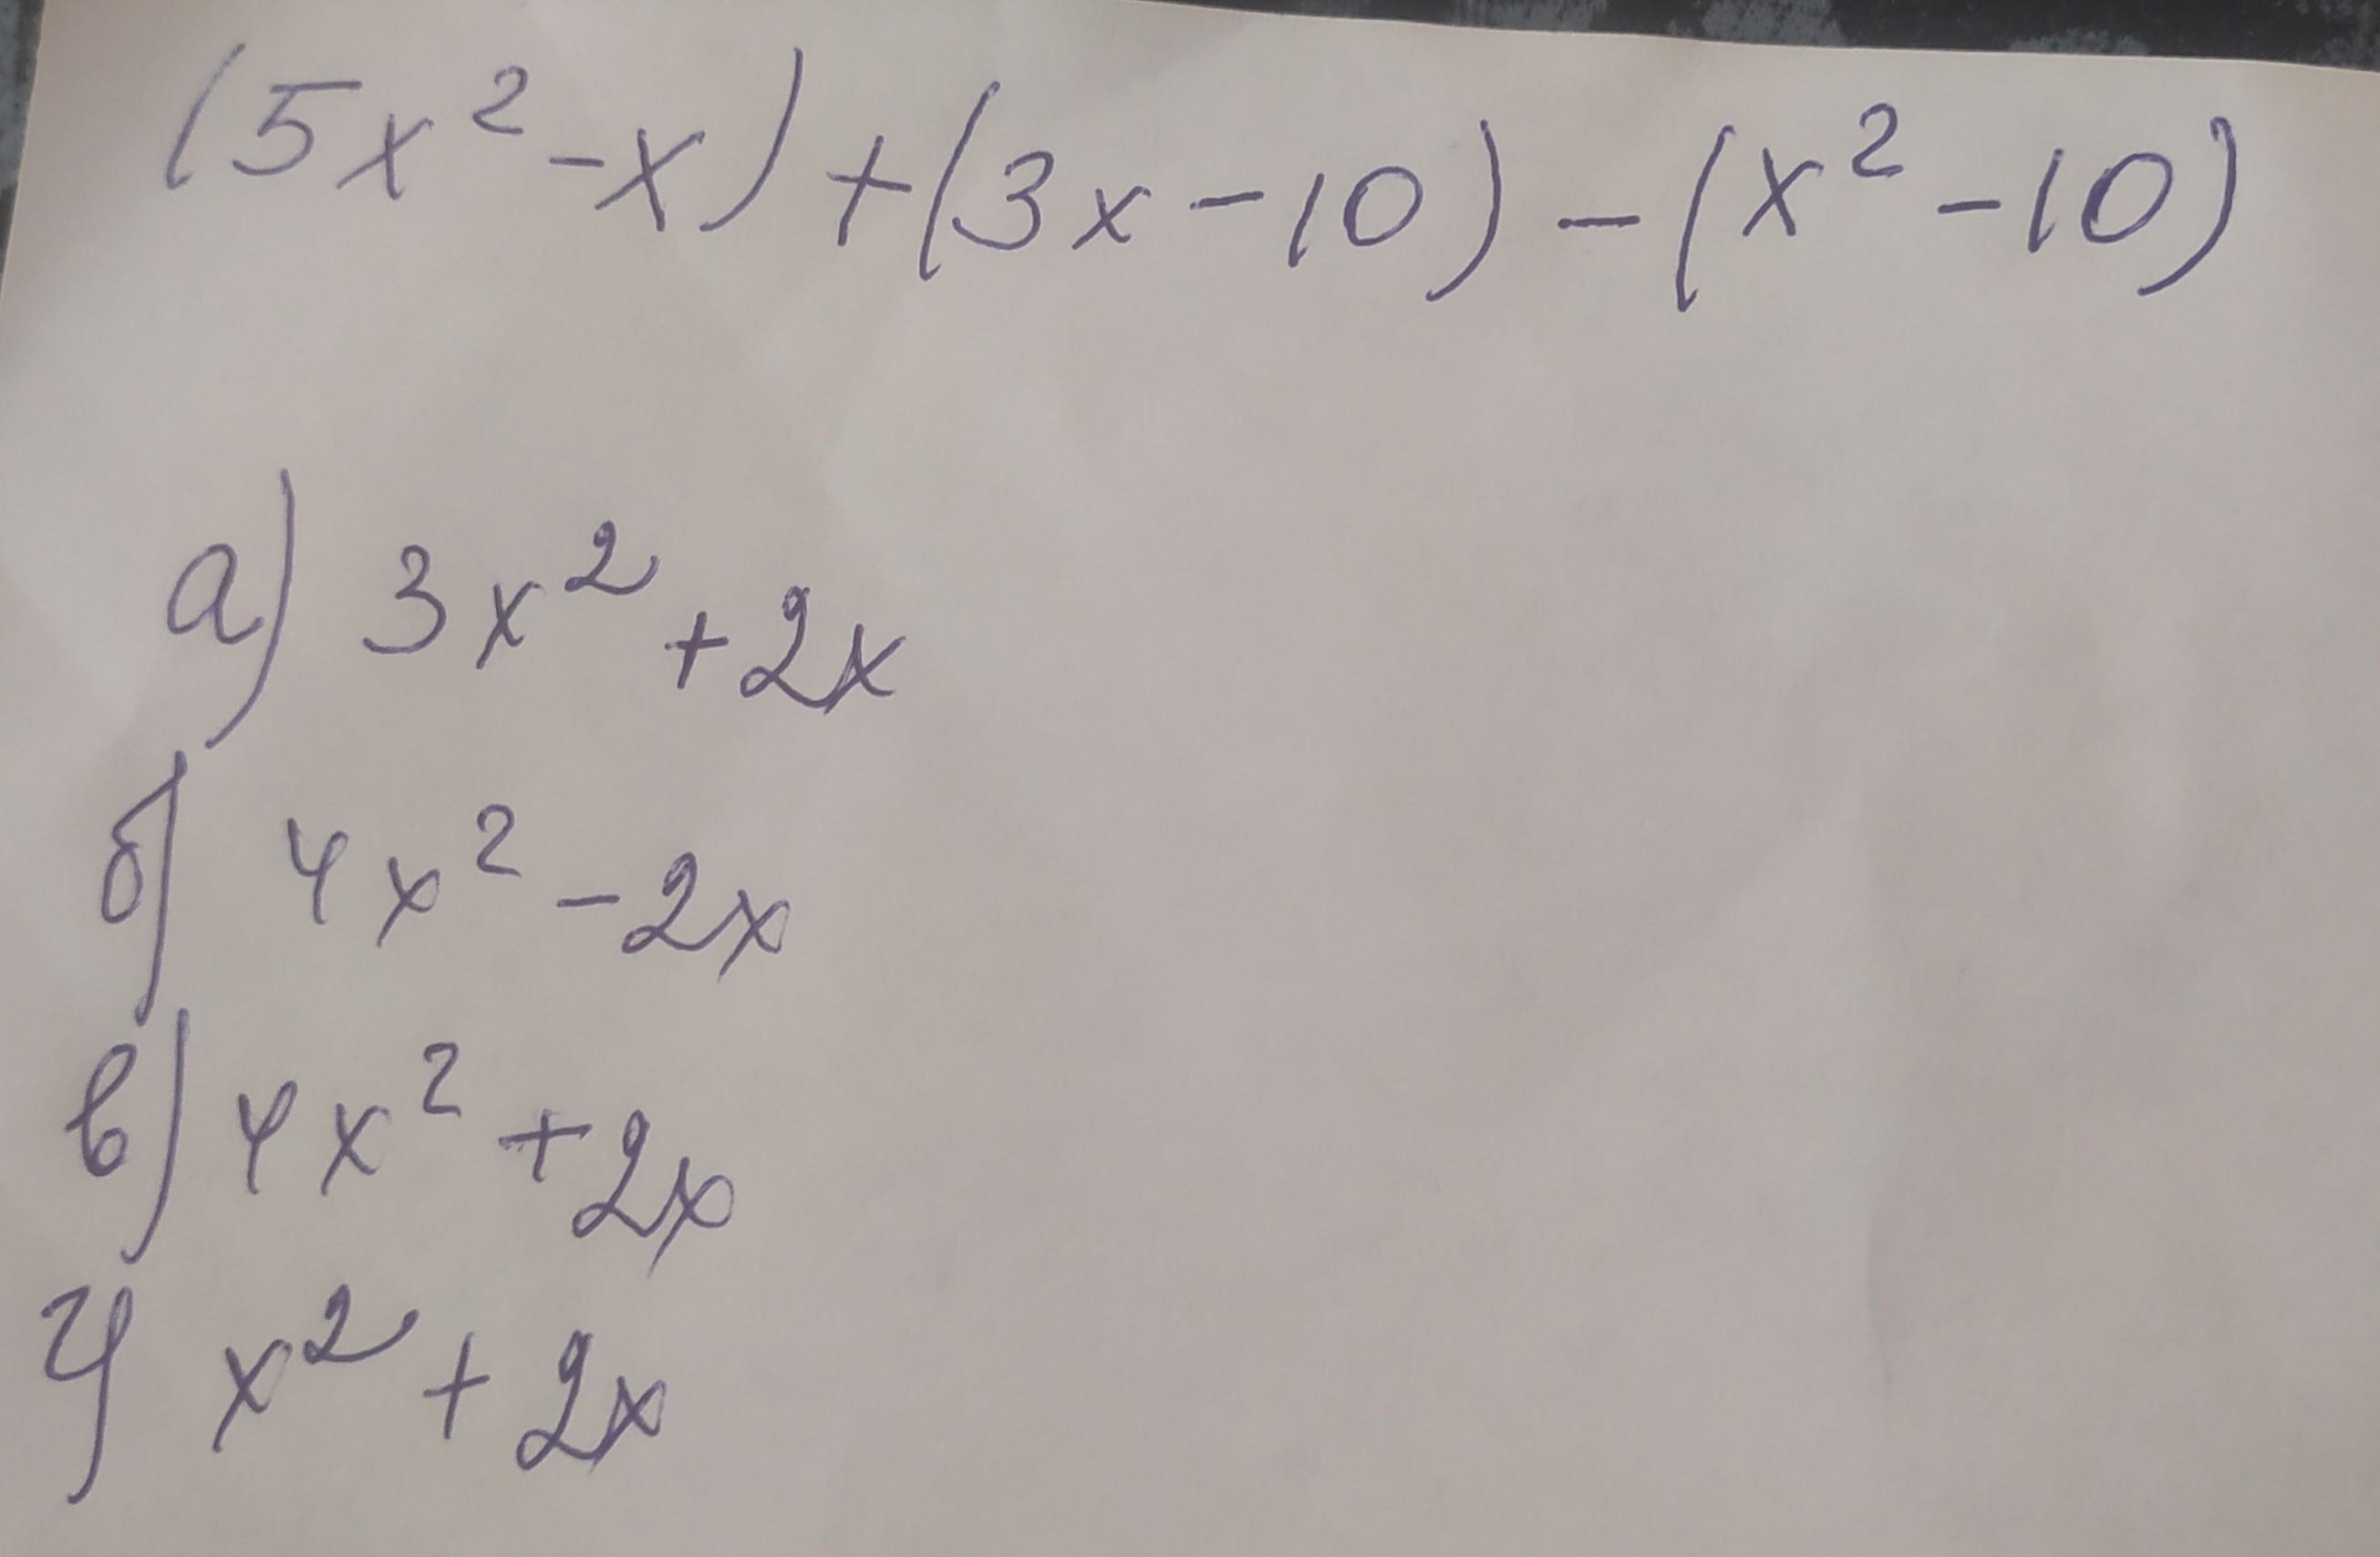 (5x² - x) + (3x - 10) - (x² - 10)
а) 3x² + 2x
б) 4x² - 2x
в) 4x² + 2x
г) x² + 2x